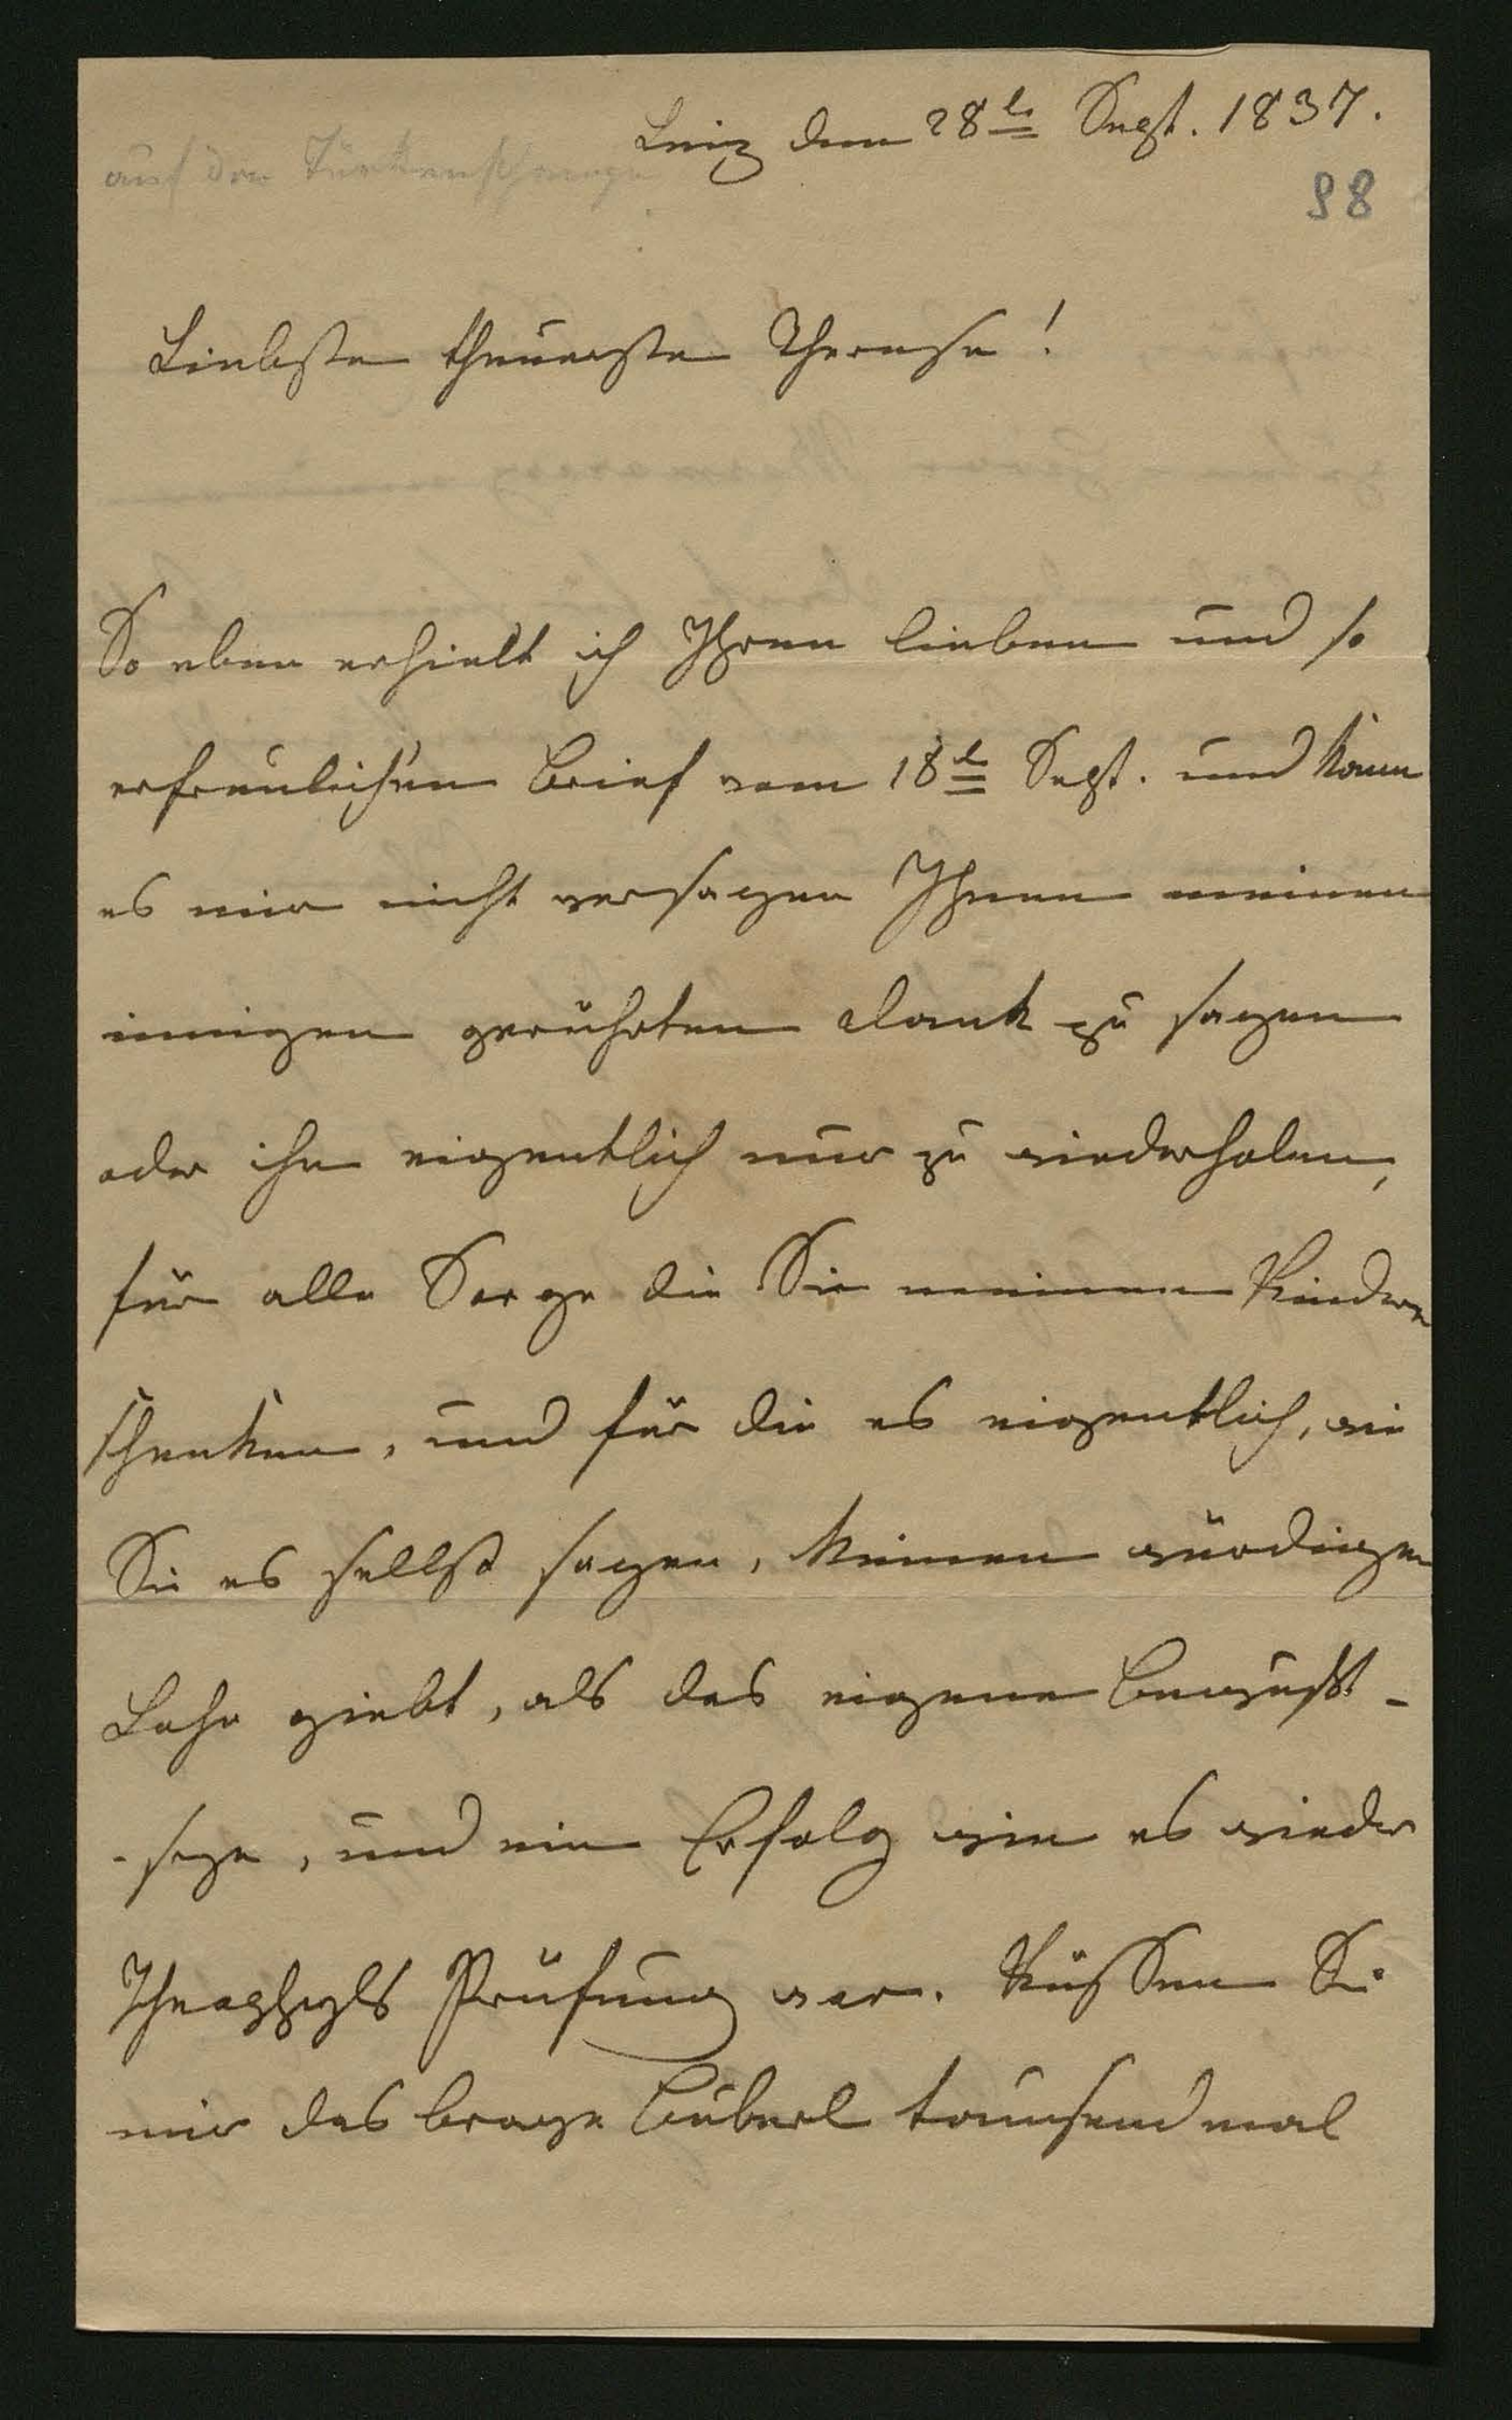 Linz den 28t Sept. 1837.
auf der Türkenschanze
98
Liebste theuerste Therese!
So eben erhielt ich Ihren lieben und so
erfreulichen Brief vom 18t Sept. und kann
es mir nicht versagen Ihnen meinen
innigen gerührten Dank zu sagen
oder ihn eigentlich nur zu wiederholen,
für alle Sorge die Sie meinen Kindern
schenken, und für die es eigentlich, wie
Sie es selbst sagen, keinen würdigen
Lohn giebt, als das eigene Bewußt-
-seyn, und ein Erfolg wie es wieder
Theophyls Prüfung war. Küssen Sie
mir das brave Büberl tausendmal